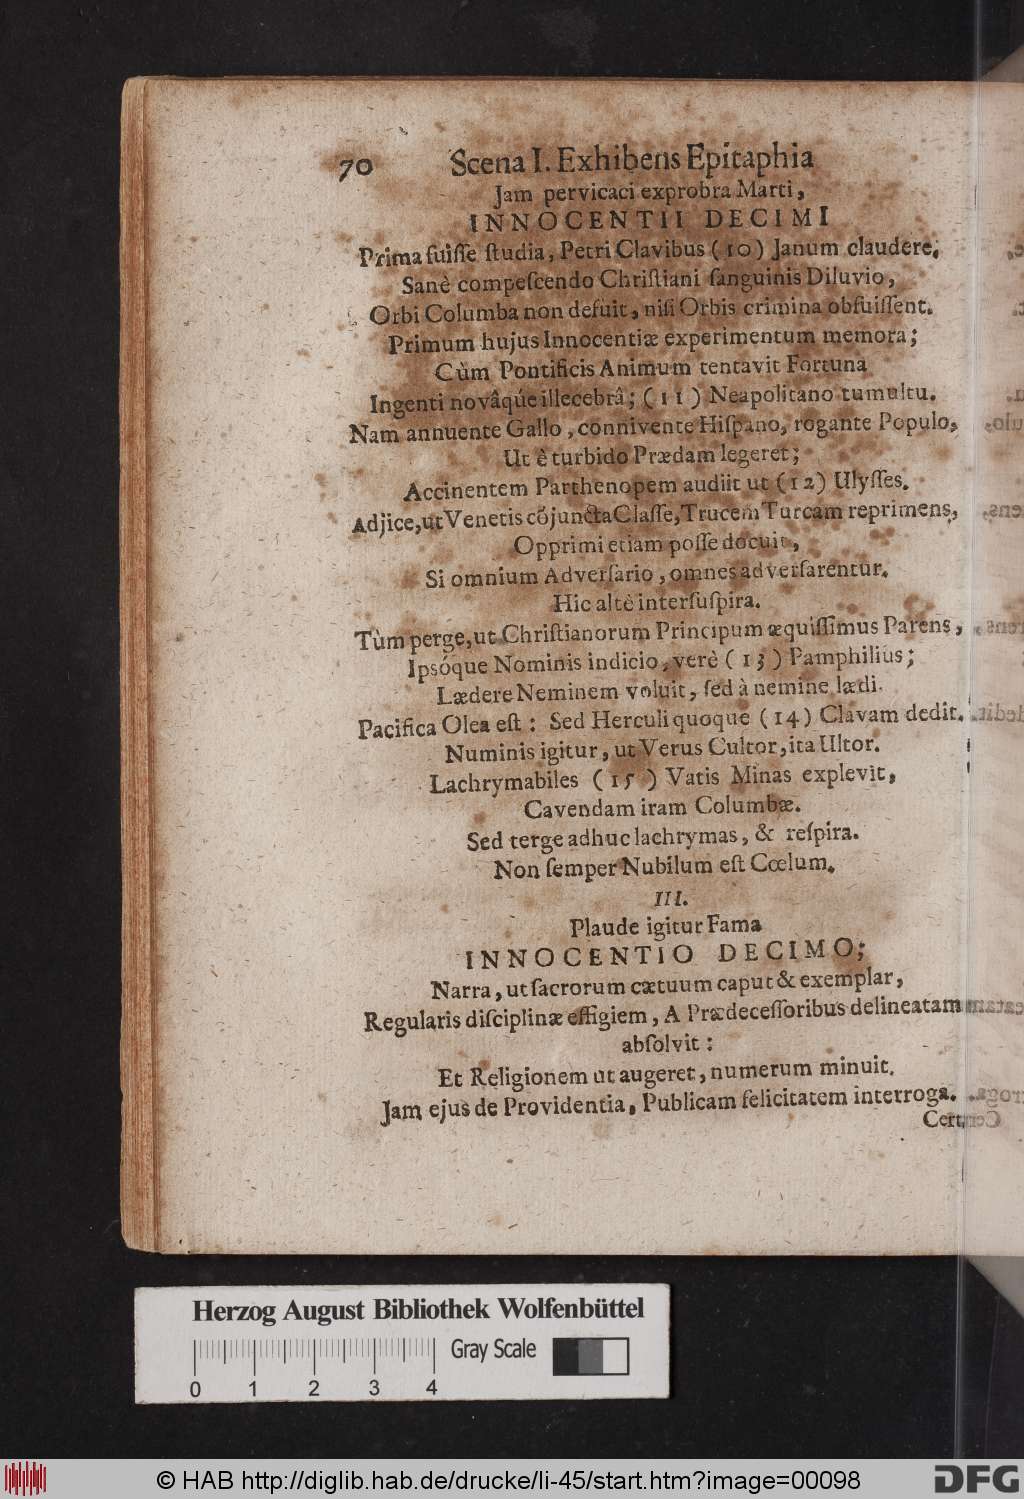 70 Scena I. Exhibens Epitaphia
Jam pervicaci exprobra Marti,
INNOCENTII DECIMI
Prima fuiſſe ſtudia, Petri Clavibus (10) Janum claudere;
Sanè compeſcendo Chriſtiani ſanguinis Diluvio,
Orbi Columba non defuit, niſi Orbis crimina obfuiſſent.
Primum hujus Innocentiæ experimentum memora;
Cùm Pontificis Animum tentavit Fortuna
Ingenti novâqúe illecebrâ; (11) Neapolitano tumultu.
Nam annuente Gallo, connivente Hiſpano, rogante Populo,
Ut è turbido Prædam legeret;
Accinentem Parthenopem audiit ut (12) Ulyſſes.
Adjice, ut Venetis cójuncta Claſſe, Trucem Turcam reprimens,
Opprimi etiam poſſe docuit,
Si omnium Adverſario, omnes adverſarentur.
Hic altè interſuſpira.
Tùm perge, ut Chriſtianorum Principum æquiſſimus Parens,
Ipsóque Nominis indicio, verè (13) Pamphilius;
Lædere Neminem voluit, ſed à nemine lædi.
Pacifica Olea eſt: Sed Herculi quoque (14) Clavam dedit.
Numinis igitur, ut Verus Cultor, ita Ultor.
Lachrymabiles (15) Vatis Minas explevit,
Cavendam iram Columbæ.
Sed terge adhuc lachrymas, & reſpira.
Non ſemper Nubilum eſt Cœlum.
III.
Plaude igitur Fama
INNOCENTIO DECIMO;
Narra, ut ſacrorum cætuum caput & exemplar,
Regularis diſciplinæ effigiem, A Prædeceſſoribus delineatam
abſolvit:
Et Religionem ut augeret, numerum minuit.
Jam ejus de Providentia, Publicam felicitatem interroga.
Herzog August Bibliothek Wolfenbüttel
Gray Scale
0 1 2 3 4
© HAB http://diglib.hab.de/drucke/li-45/start.htm?image=00098
DFG